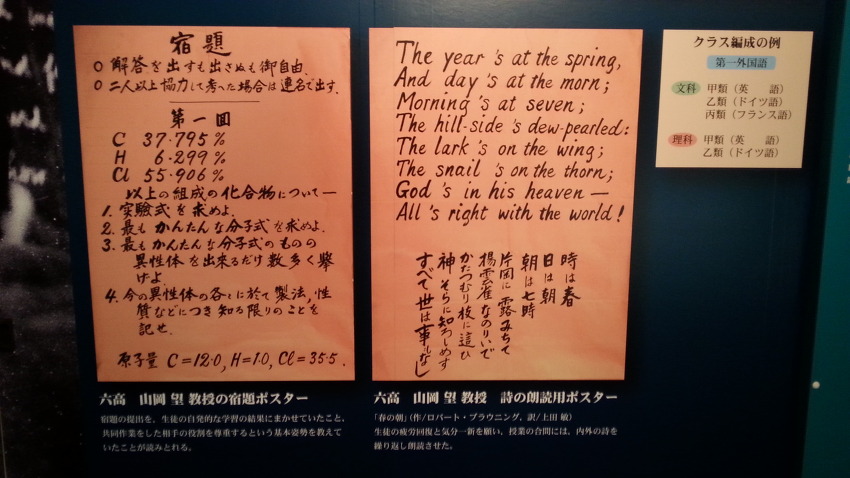 宿題
○ 解答を出すも出さぬも御自由.
○ 二人以上協力して考へた場合は連名で出す.
第一回
C 37.795 %
H 6.299 %
Cl 55.906 %
以上の組成の化合物について—
1. 実験式を求めよ.
2. 最もかんたんな分子式を求めよ.
3. 最もかんたんな分子式のものの
異性体を出来るだけ数多く挙
げよ.
4. 今の異性体の各々に於て製法,性
質などにつき知る限りのことを
記せ.
原子量 C=12.0, H=1.0, Cl=35.5.
六高 山岡 望 教授の宿題ポスター
宿題の提出を、生徒の自発的な学習の結果にまかせていたこと、
共同作業をした相手の役割を尊重するという基本姿勢を教えて
いたことが読みとれる。
The year 's at the spring,
And day 's at the morn;
Morning 's at seven;
The hill-side 's dew-pearled:
The lark 's on the wing;
The snail 's on the thorn;
God 's in his heaven —
All 's right with the world!
時は春
日は朝
朝は七時
片岡に露みちて
揚雲雀なのりいで
かたつむり枝に這ひ
神そらに知ろしめす
すべて世は事もなし
六高 山岡 望 教授 詩の朗読用ポスター
「春の朝」(作/ロバート・ブラウニング、訳/上田 敏)
生徒の疲労回復と気分一新を願い、授業の合間には、内外の詩を
繰り返し朗読させた。
クラス編成の例
第一外国語
文科 甲類(英 語)
乙類(ドイツ語)
丙類(フランス語)
理科 甲類(英 語)
乙類(ドイツ語)